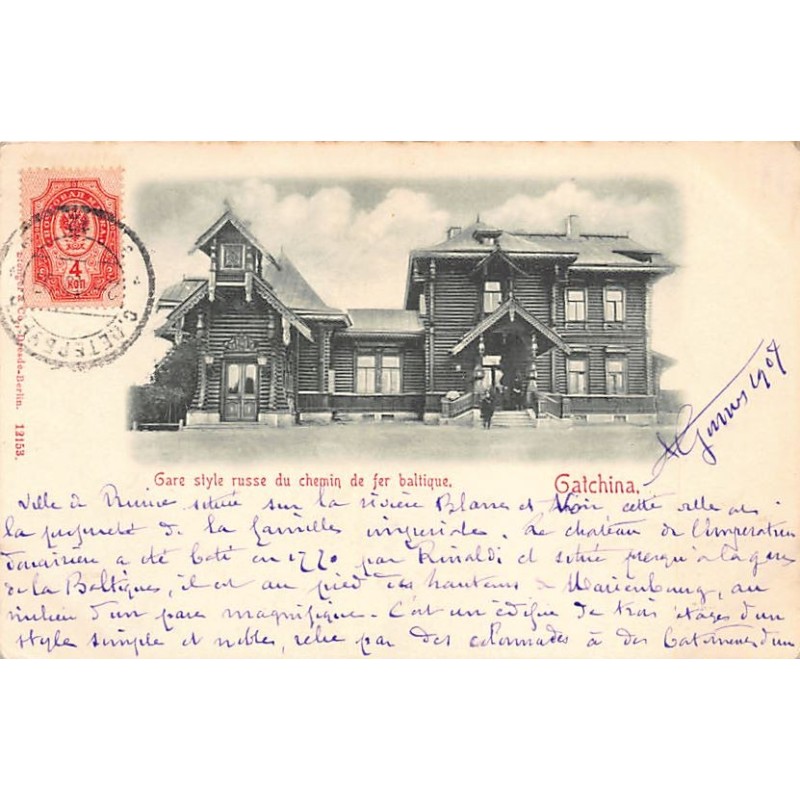 ПОЧТОВАЯ МАРКА
4
КОП
С.ПЕТЕРБ
& Co., Dresde-Berlin. 12153.
Gare style russe du chemin de fer baltique.
Gatchina.
ville de située sur la rivière et Noir, cette ville
la propriété de la familles impériale. Le chateau de l'Impératrice
douairière a été bati en 1770 par Rinaldi et située presqu'à la gare
de la Baltiques, il est au pied des hauteurs de Marienbourg, au
milieu d'un parc magnifique - C'est un édifice de trois étages d'un
style simple et nobles, relié par des colonnades à des d'un